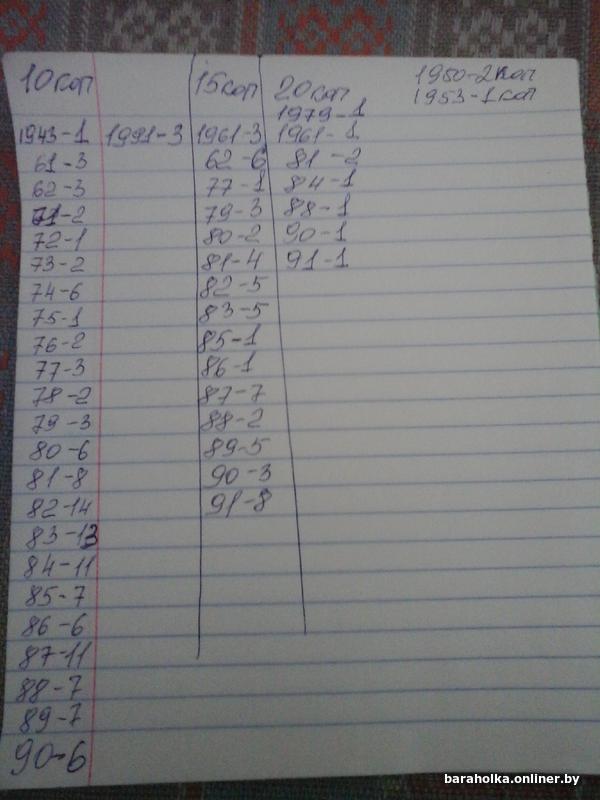 10коп
1943-1
61-3
62-3
71-2
72-1
73-2
74-6
75-1
76-2
77-3
78-2
79-3
80-6
81-8
82-14
83-13
84-11
85-7
86-6
87-11
88-7
89-7
90-6
1991-3
15коп
1961-3
62-6
77-1
79-3
80-2
81-4
82-5
83-5
85-1
86-1
87-7
88-2
89-5
90-3
91-8
20коп
1979-1
1961-1
81-2
84-1
88-1
90-1
91-1
1950-2коп
1953-1коп
baraholka.onliner.by